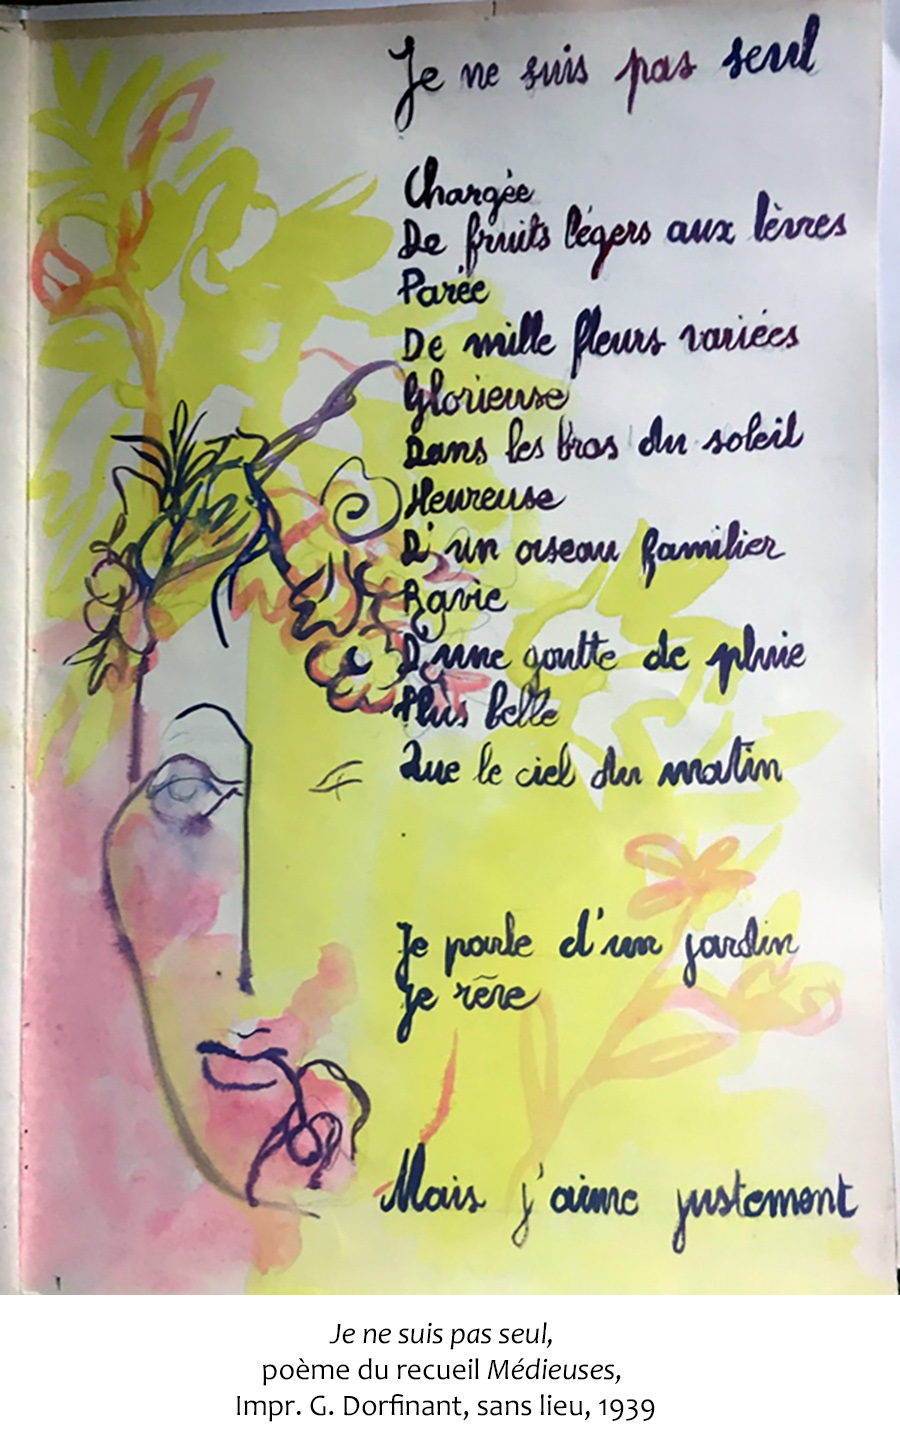 Je ne suis pas seul
Chargée
De fruits légers aux lèvres
Parée
De mille fleurs variées
Glorieuse
Dans les bras du soleil
Heureuse
D'un oiseau familier
Ravie
D'une goutte de pluie
Plus belle
Que le ciel du matin
Je parle d'un jardin
Je rêve
Mais j'aime justement
Je ne suis pas seul,
poème du recueil Médieuses,
Impr. G. Dorfinant, sans lieu, 1939